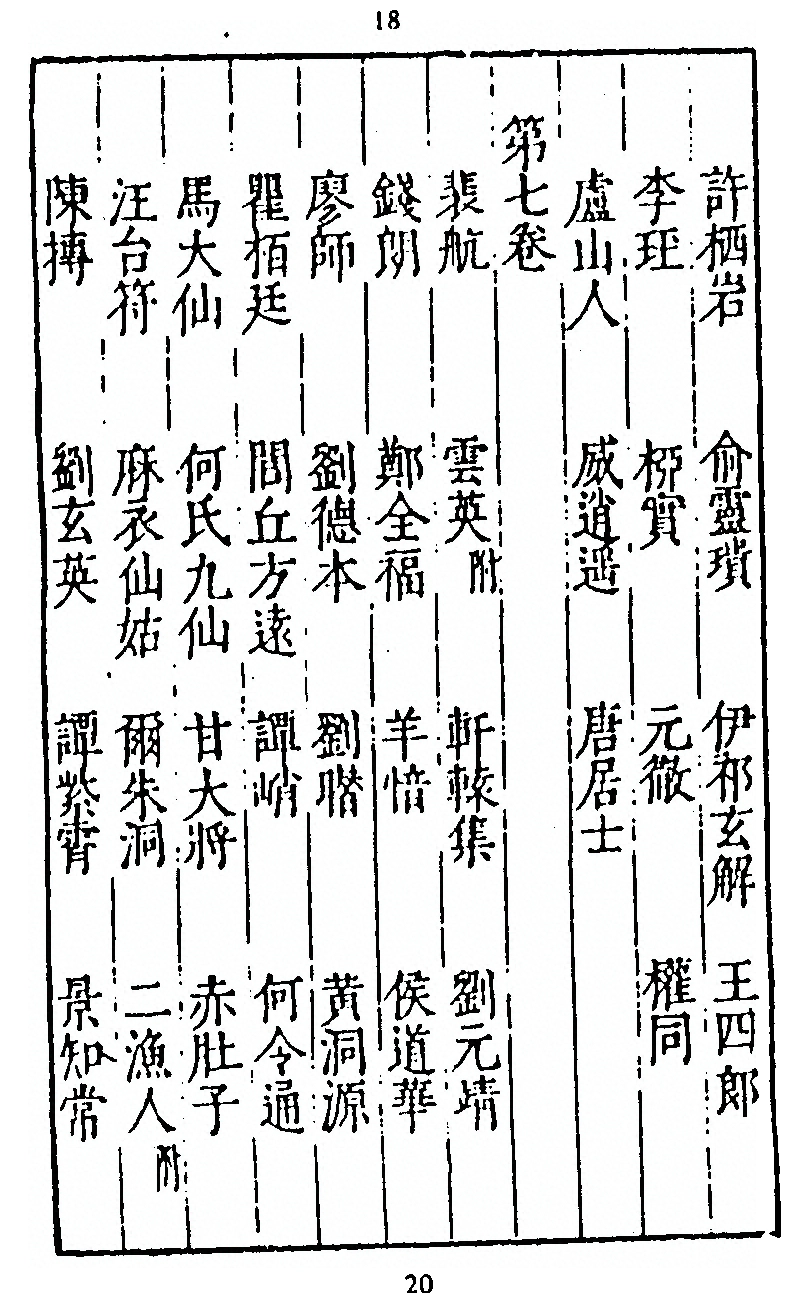 18
許栖岩 俞靈瓆 伊祁玄解 王四郎
李玨 栁實 元徹 權同
盧山人 威逍遥 唐居士
第七卷
裴航 雲英附 軒轅集 劉元靖
錢朗 鄭全福 羊愔 侯道華
廖師 劉德本 劉㬱 黄洞源
瞿栢廷 閭丘方遠 譚峭 何令通
馬大仙 何氏九仙 甘大將 赤肚子
汪台符 麻衣仙姑 爾朱洞 二漁人附
陳摶 劉玄英 譚紫霄 景知常
20